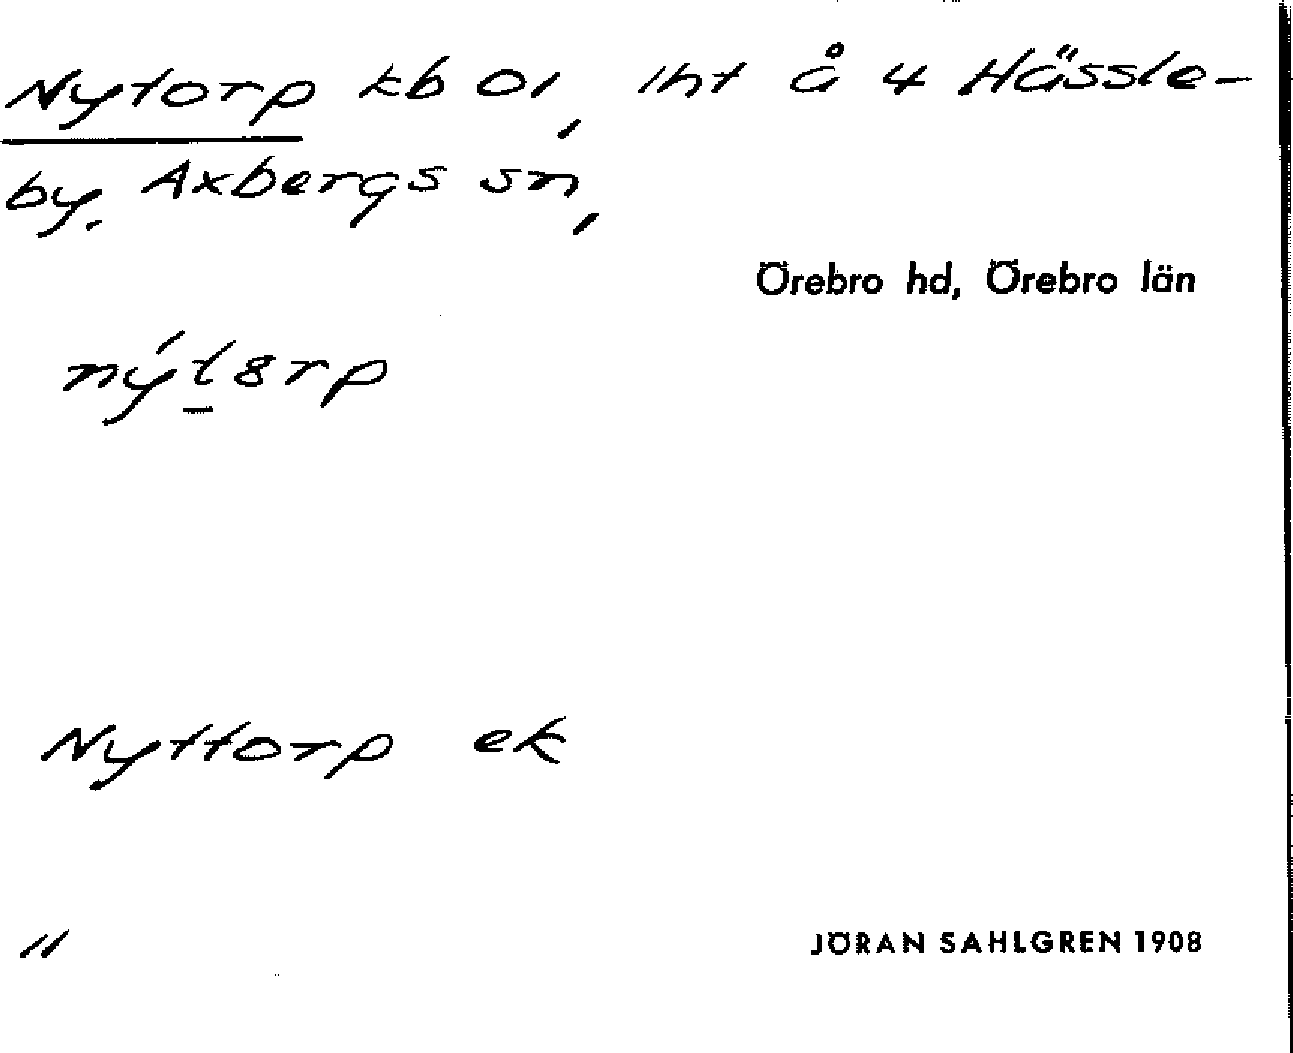 Nytorp kb 01, iht å 4 Hässle-
by, Axbergs sn,
Örebro hd, Örebro län
nýt8rp
Nyttorp ek
"
JÖRAN SAHLGREN 1908